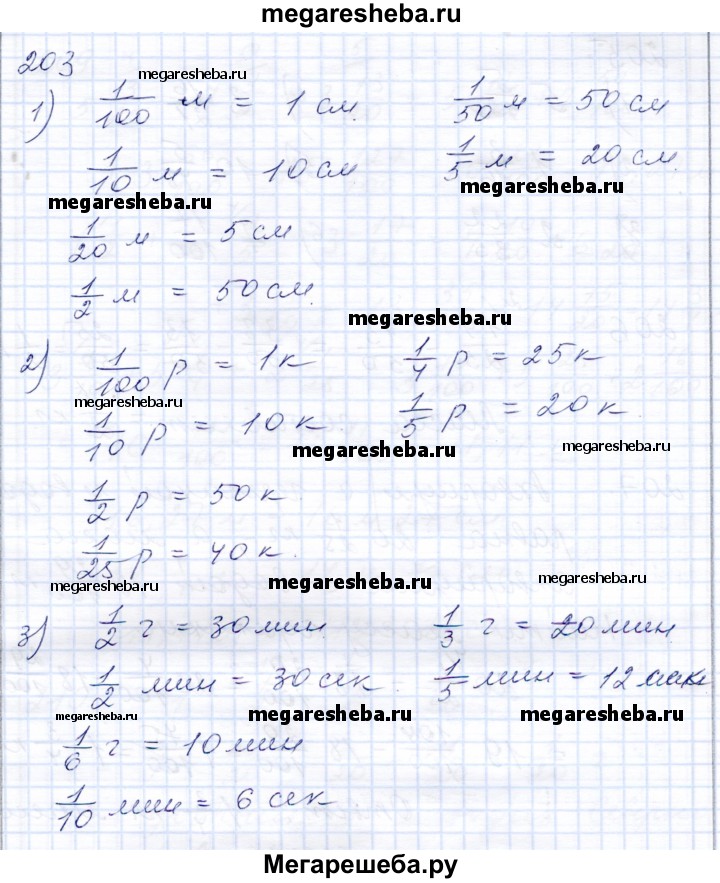 megaresheba.ru
203
megaresheba.ru
1) 1/100 м = 1 см. 1/50 м = 50 см
1/10 м = 10 см 1/5 м = 20 см.
megaresheba.ru megaresheba.ru
1/20 м = 5 см
1/2 м = 50 см.
megaresheba.ru
2) 1/100 р = 1 к 1/4 р = 25 к
megaresheba.ru
1/10 р = 10 к. 1/5 р = 20 к.
megaresheba.ru megaresheba.ru
1/2 р = 50 к.
1/25 р = 40 к.
megaresheba.ru megaresheba.ru megaresheba.ru
3) 1/2 г = 30 мин. 1/3 г = 20 мин.
1/2 мин = 30 сек. 1/5 мин = 12 сек
megaresheba.ru megaresheba.ru megaresheba.ru
1/6 г = 10 мин
1/10 мин = 6 сек
Мегарешеба.ру